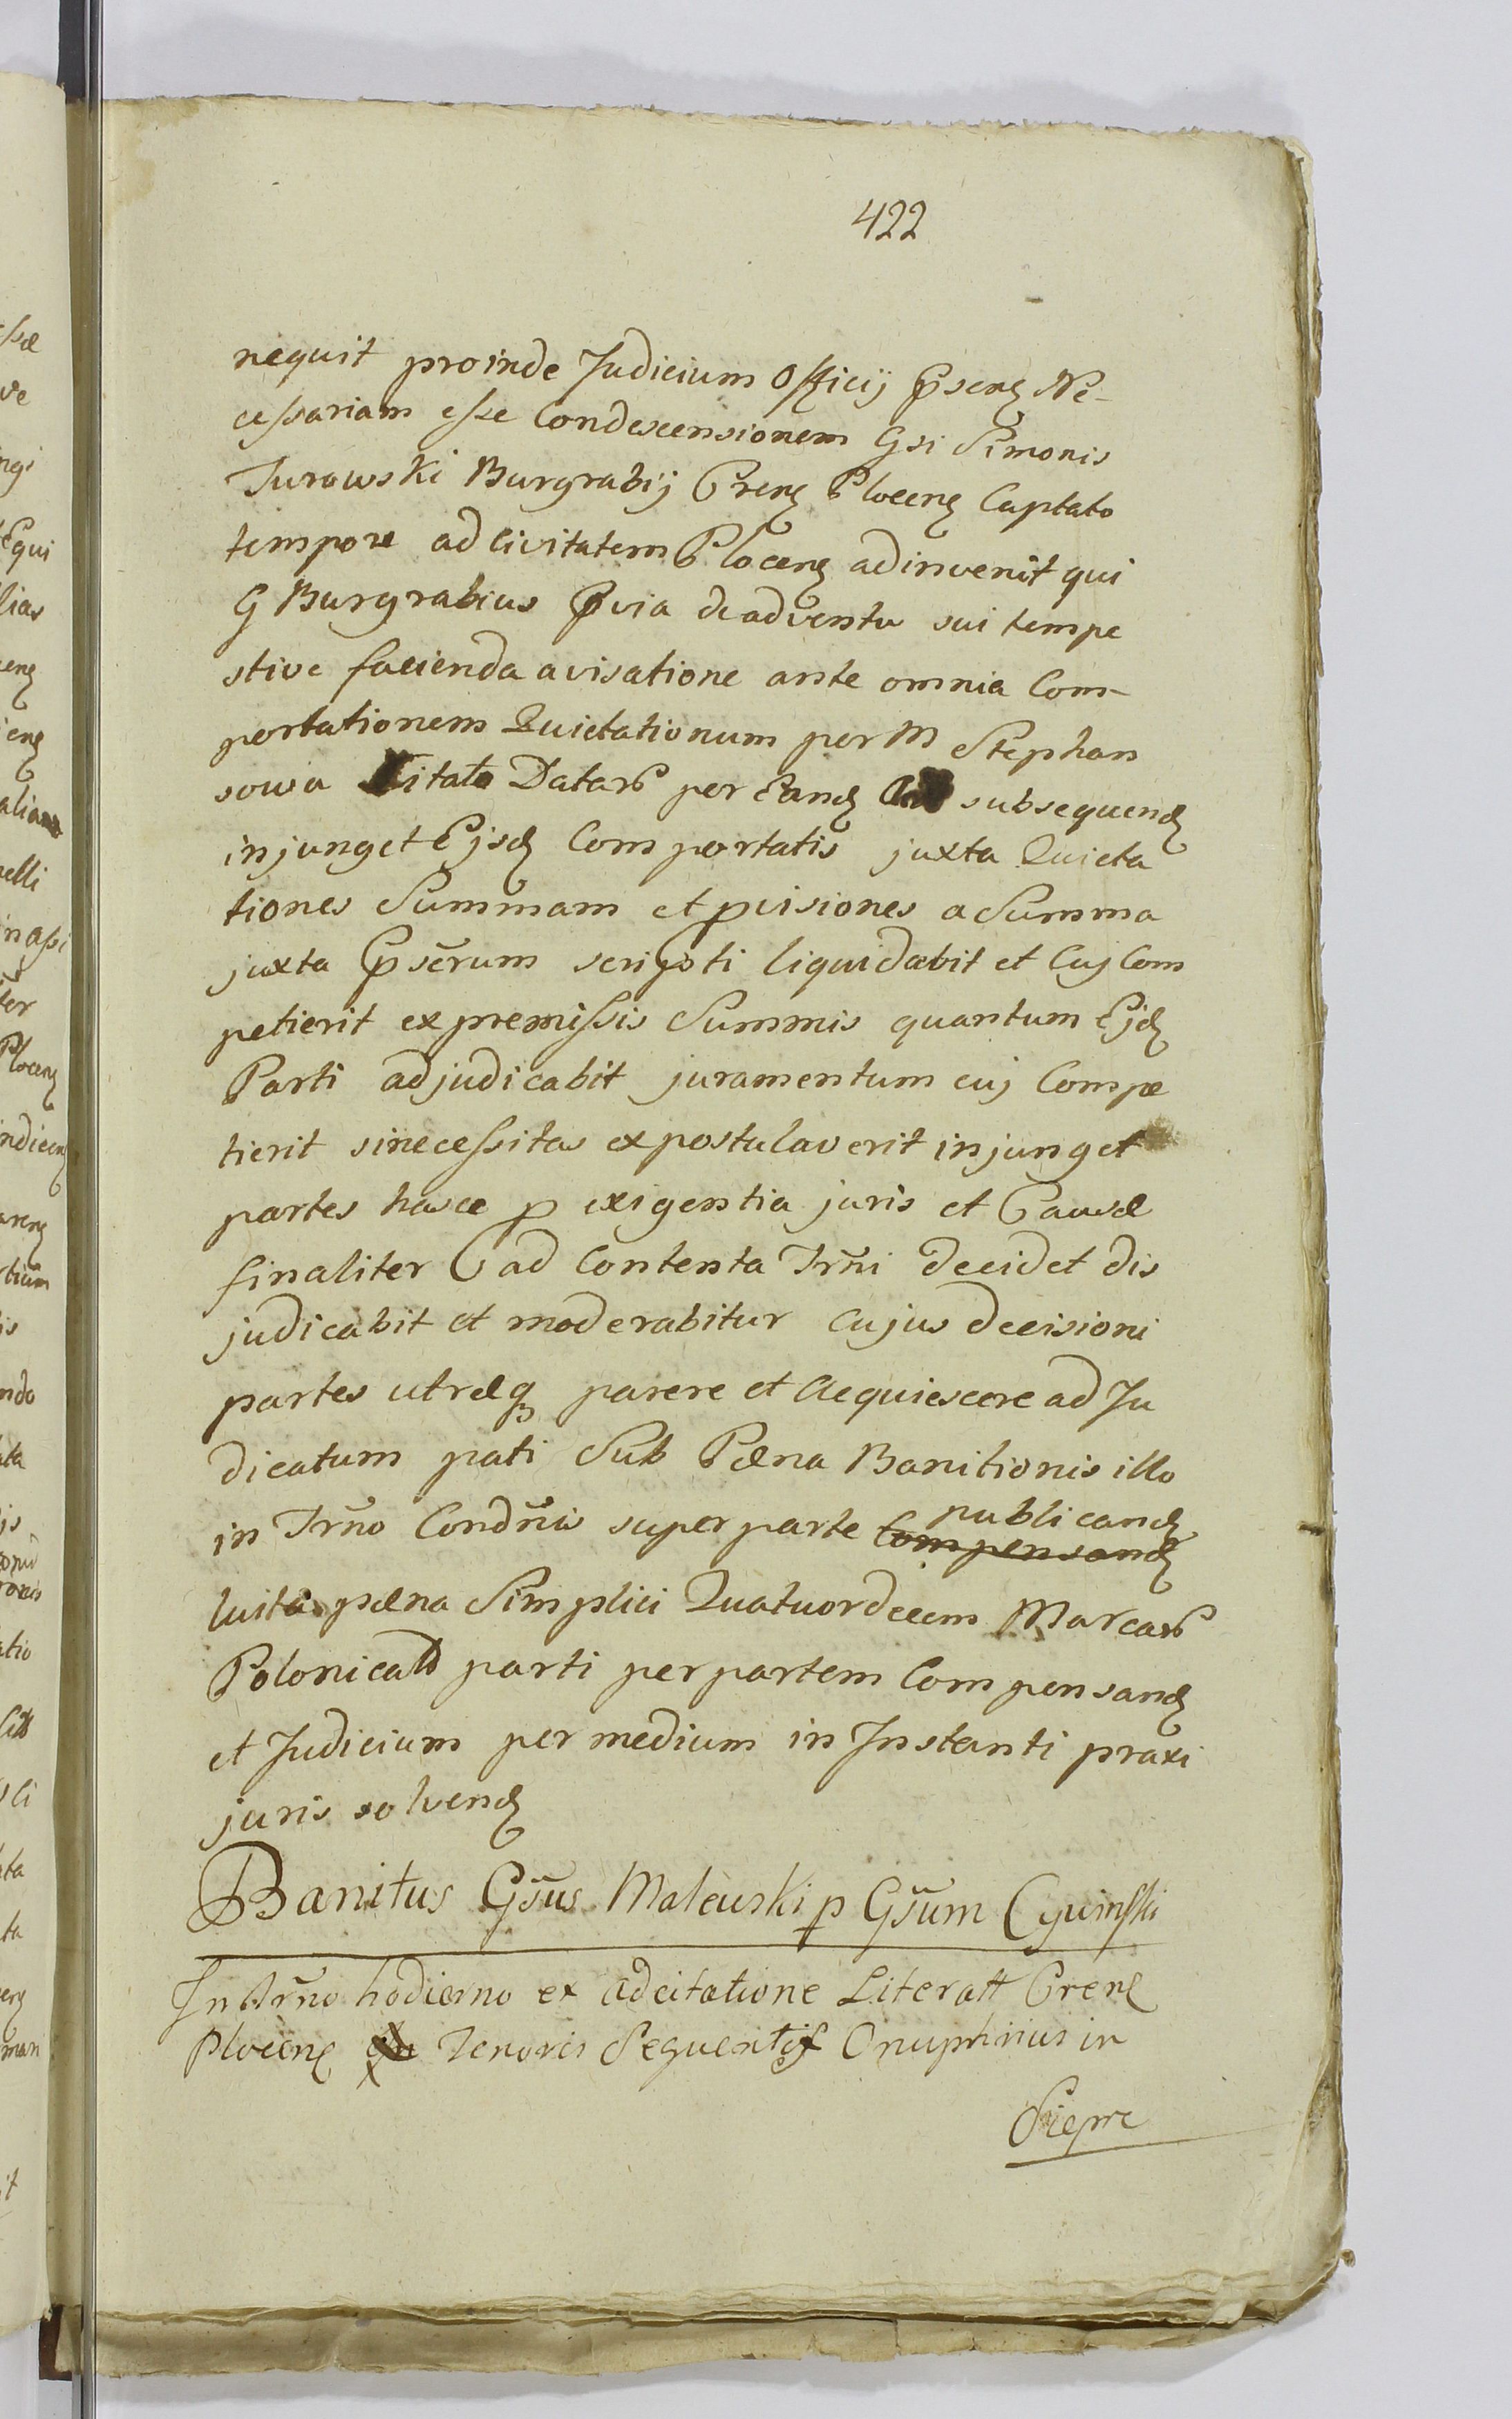 422
nequit proinde Judicium Officij Pp̄senꝫ Ne-
cessariam esse Condescensionem Gsi Simonis
Turowski Burgrabij Crenꝫ Plocenꝫ Captato
tempore ad Civitatem Plocenꝫ adinvenit qui
G Burgrabius Pp̄via de adventu sui tempe
stive facienda avisatione ante omnia Com-
portationem Quietationum per M Stephan
sowa Datarꝫ per Eandꝫ subsequendꝫ
injunget Ejsdꝫ Comportatis juxta Quieta
tiones Summam et pvisiones a Summa
juxta Pp̄serum scripti liquidabit et Cuj Com
petierit ex premissis Summis quantum Ejdꝫ
Parti adjudicabit juramentum cuj Compe
tierit si necessitas expostulaverit injunget
partes hasce p exigentia juris et Causæ
finaliter C ad Contenta Trñi decidet dis
judicabit et moderabitur Cujus decisioni
partes utræqꝫ parere et Acquiescere ad Ju
dicatum pati Sub Pæna Banitionis illo
in Trño Condñis super parte publicandꝫ
Compensandꝫ
luita pæna Simplici Quatuordecem Marcarꝫ
Polonicalꝫ parti per partem Compensandꝫ
et Judicium per medium in Instanti praxi
juris solvendꝫ
Banitus Gs̃us Maleuski p Gs̃um Cywinski
In Trño hodierno ex adcitatione Literatt Crenꝫ
Plocenꝫ Tenoris Sequentis Onuphrius in
Siepre
ssæ
ve
ngi
Equi
lias
enꝫ
ienꝫ
alia
nelli
in assi
ter
Plocenꝫ
indicenꝫ
arenꝫ
rtium
is
ndo
ata
js
atio
sli
ata
ta
enꝫ
man
it